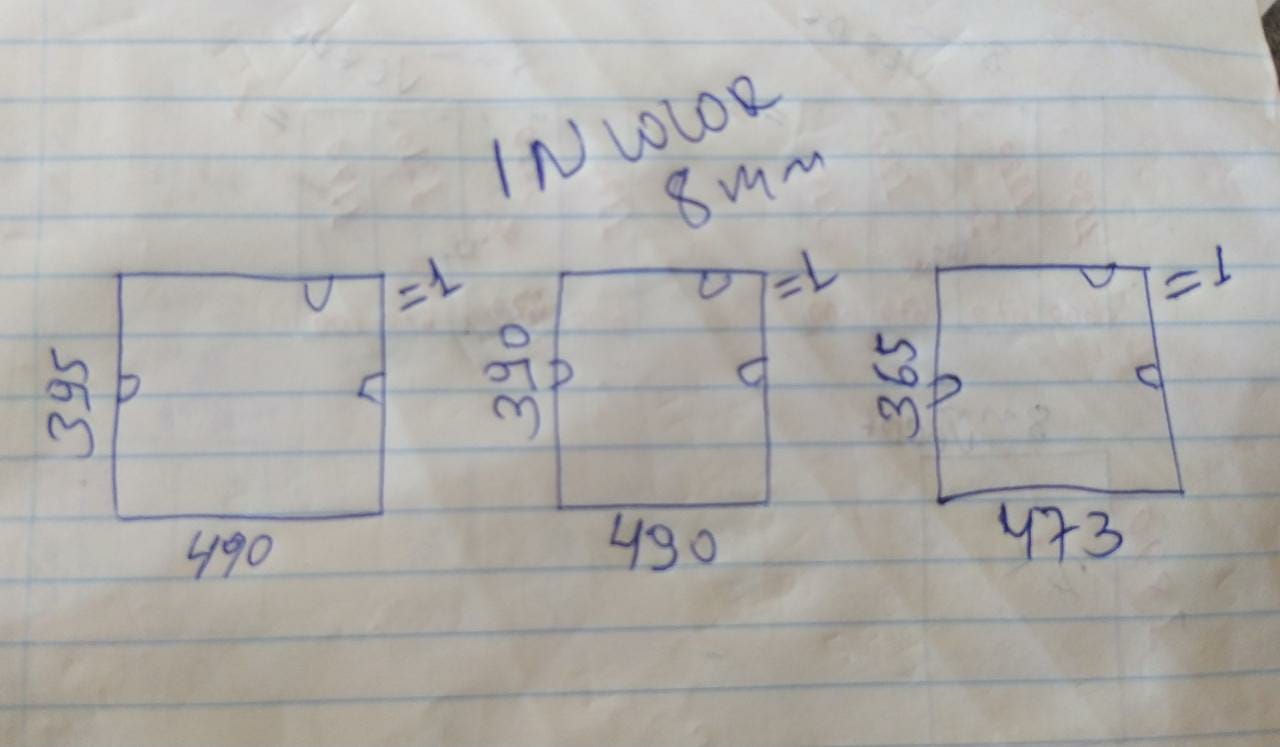 INCOLOR
8mm
=1 =1 =1
395 390 365
490 490 473